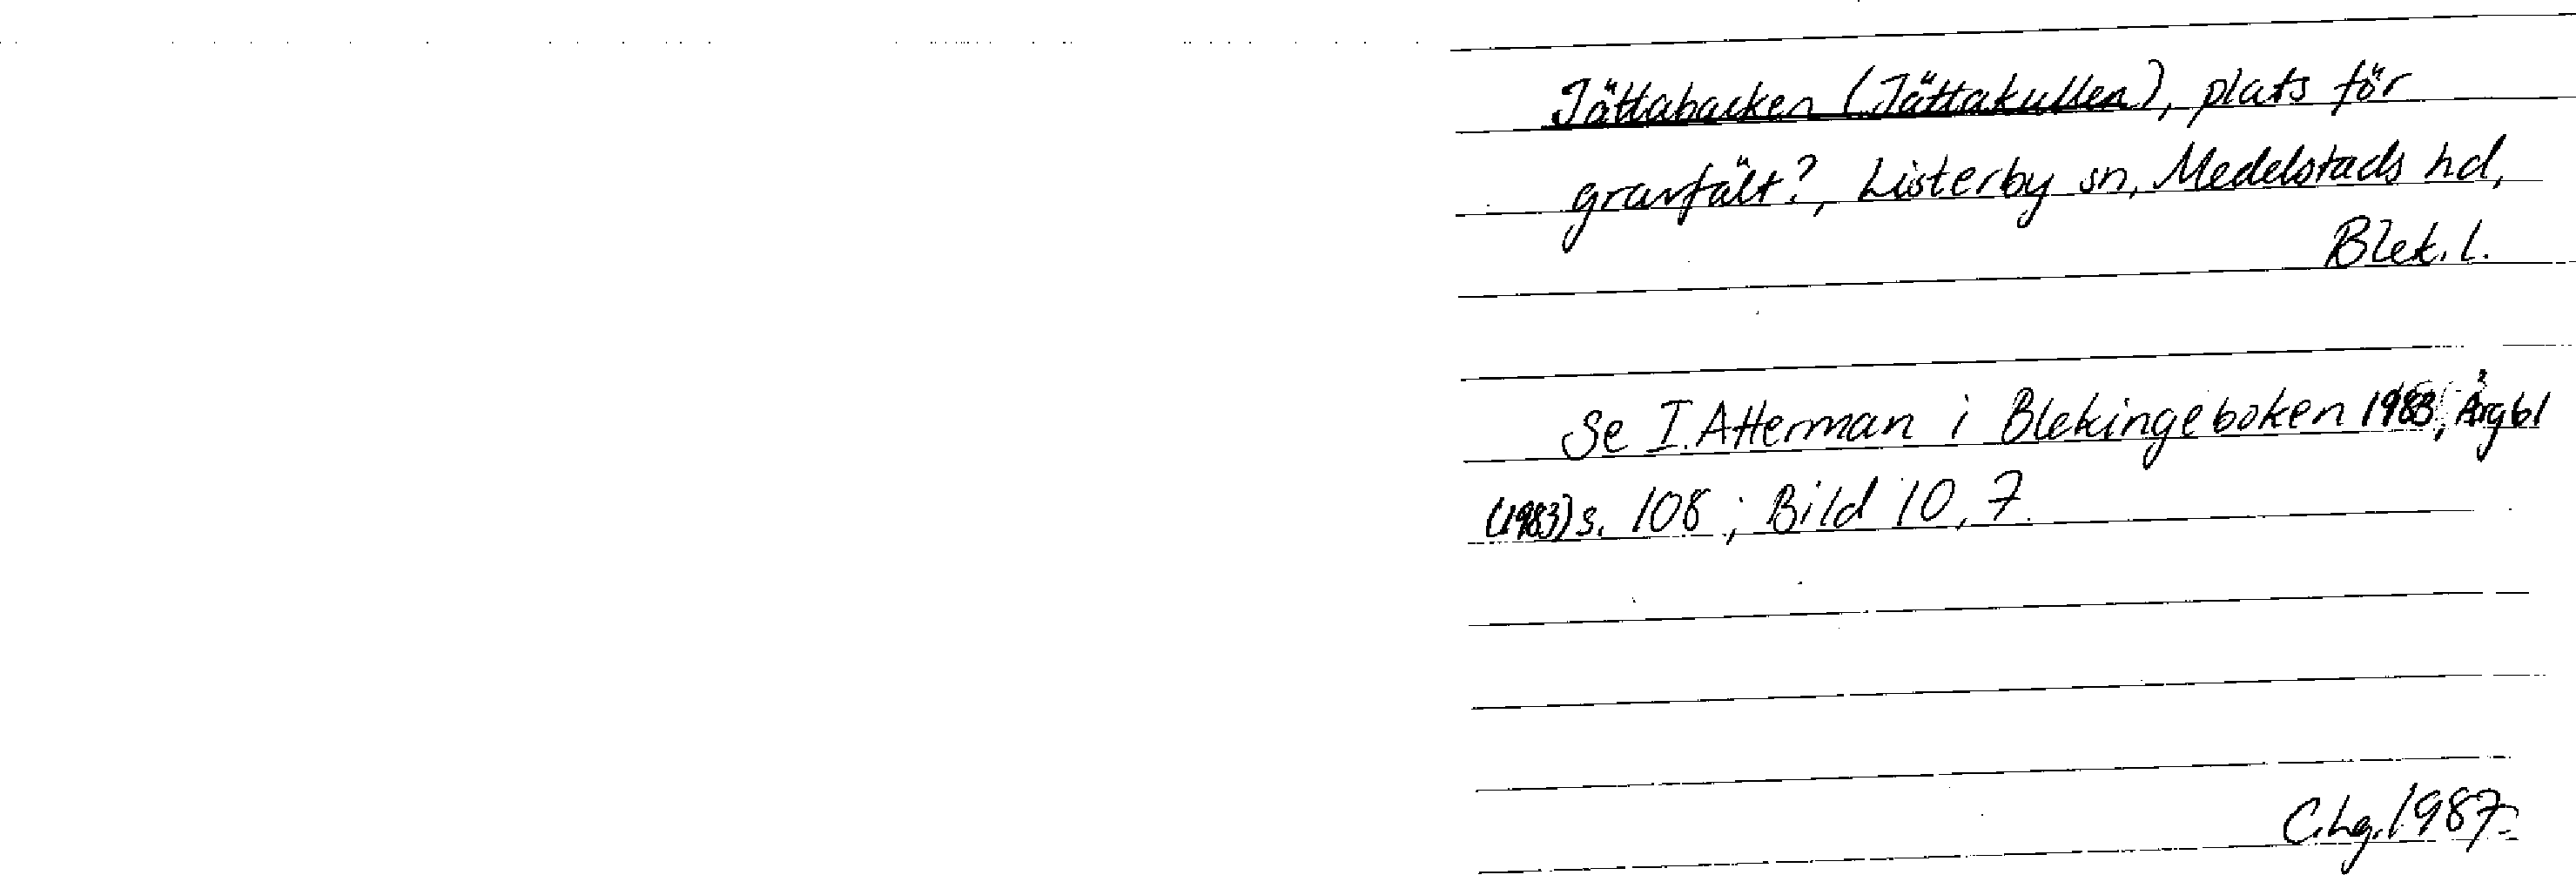 Jättabacken (Jättakullen), plats för
gravfält?, Listerby sn, Medelstads hd,
Blek. l.
Se I. Atterman i Blekingeboken 1983, Årg 61
(1983) s. 108; Bild 10, 7.
C. Lg. 1987